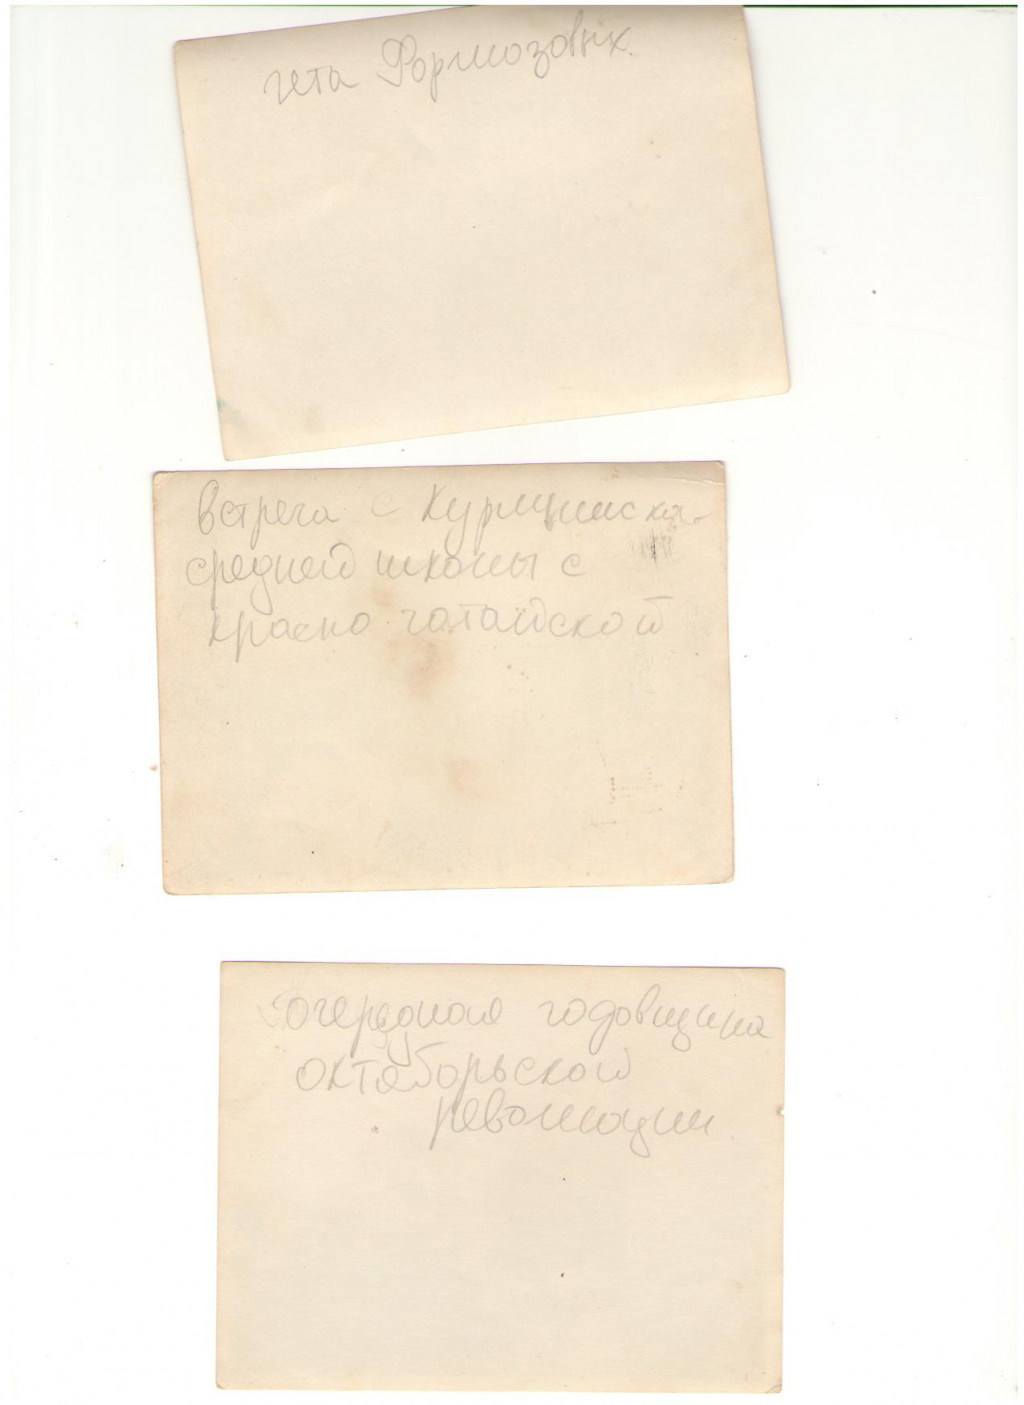 чета Формозовых.
встреча с Курмышск
средней школы с
красно четайской
очередная годовщина
октяборьской
революции